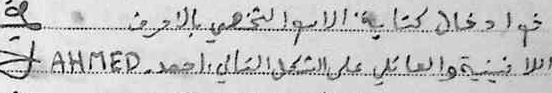 ادخال كتابة الاسم الشخصي بالاحرف
اللاتينية والعائلي على الشكل التالي احمد. AHMED